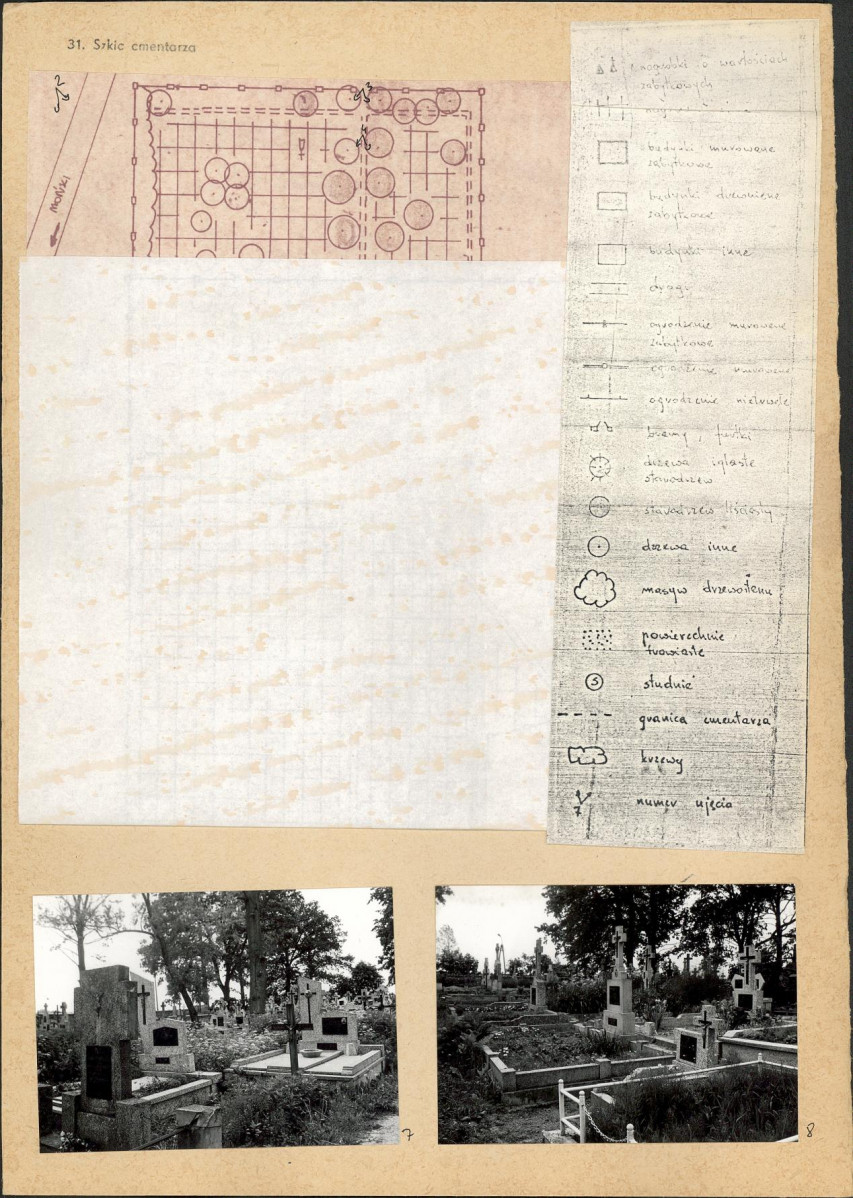 31. Szkic cmentarza
2
3
4
MOŃKI
nagrobki o wartościach
zabytkowych
budynki murowane
zabytkowe
budynki drewniane
zabytkowe
budynki inne
drogi
ogrodzenie murowane
zabytkowe
ogrodzenie murowane
ogrodzenie nietrwałe
bramy, furtki
drzewa iglaste
starodrzew
starodrzew liściasty
drzewa inne
masyw drzewostanu
powierzchnie
trawiaste
S studnie
granica cmentarza
krzewy
7 numer ujęcia
7
8